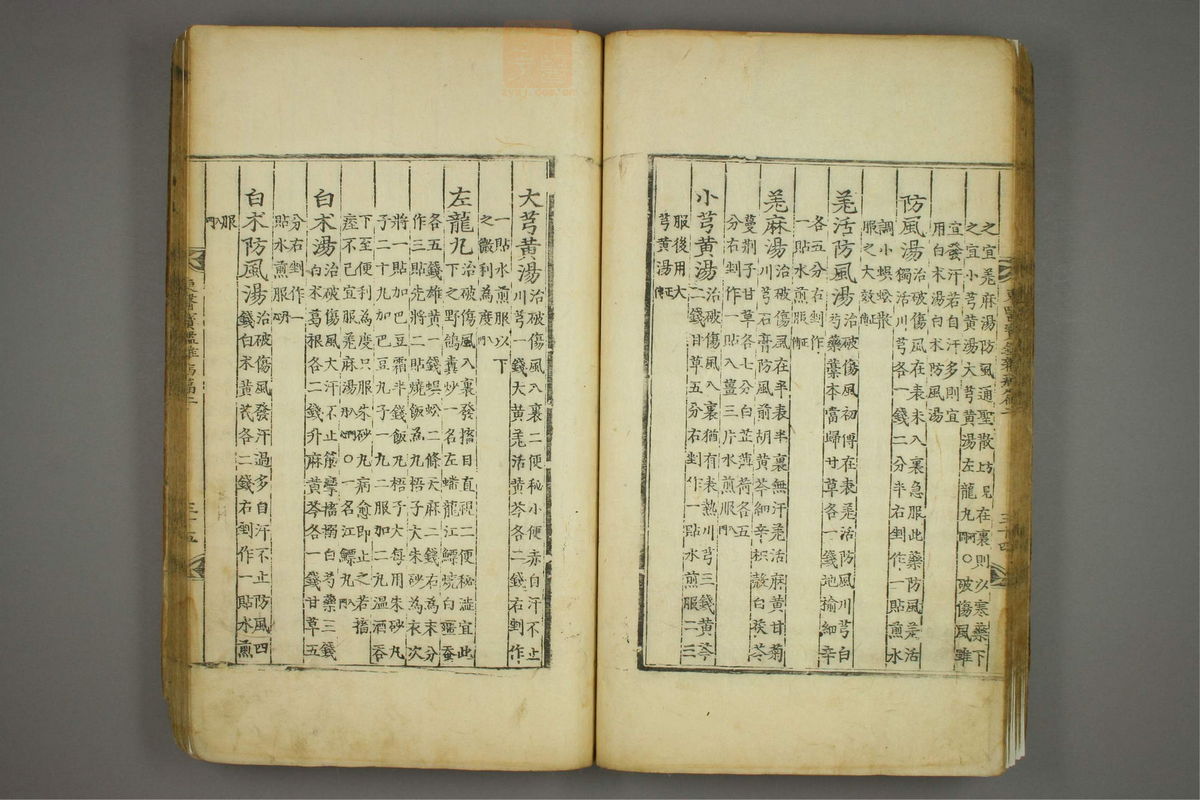 之宜羗麻湯防風通聖散方見在裏則以寒藥下
之宜小芎黄湯大芎黄湯左龍丸○破傷風雖
宜發汗若自汗多則宜
用白朮湯白朮防風湯
防風湯治破傷風在表未入裏急服此藥防風羗活
獨活川芎各一錢二分半右剉作一貼煎水
調小蜈蚣散
服之大效正傳
羗活防風湯治破傷風初傅在表羗活防風川芎白
芍藥藁本當歸甘草各一錢地榆細辛
各五分右剉作
一貼水煎服正傳
羗麻湯治破傷風在半表半裏無汗羗活麻黄甘菊
川芎石膏防風前胡黄芩細辛枳殼白茯苓
蔓荆子甘草各七分白芷薄荷各五
分右剉作一貼入薑三片水煎服入門
小芎黄湯治破傷風入裏猶有表熱川芎三錢黄芩
二錢甘草五分右剉作一貼水煎服二三
服後用大
芎黄湯正傳
東醫寶鑑雜病篇
三十四
大芎黄湯治破傷風入裏二便秘小便赤自汗不止
川芎一錢大黄羗活黄芩各二錢右剉作
一貼水煎服以下
之微利為度入門
左龍丸治破傷風入裏發搐目直視二便秘澁宜此
下之野鴿糞炒一名左蟠龍江鰾燒白殭蚕
各五錢雄黄一錢蜈蚣二條天麻二錢右為末分
作三貼先將二貼燒飯為丸梧子大朱砂為衣次
將一貼加巴豆霜半錢飯丸梧子大每用朱砂丸
子二十丸加巴豆丸子一丸二服加二丸溫酒呑
下至便利為度只服朱砂丸病愈即止之若搐
痓不已宜服羗麻湯入門○一名江鰾丸入門
白朮湯治破傷風大汗不止筋攣搐搦白芍藥三錢
白朮葛根各二錢升麻黄芩各一錢甘草五
分右剉作一
貼水煎服
白朮防風湯治破傷風發汗過多自汗不止防風四
錢白朮黄芪各二錢右剉作一貼水煎
服
入門
東醫寶鑑雜病篇
三十五